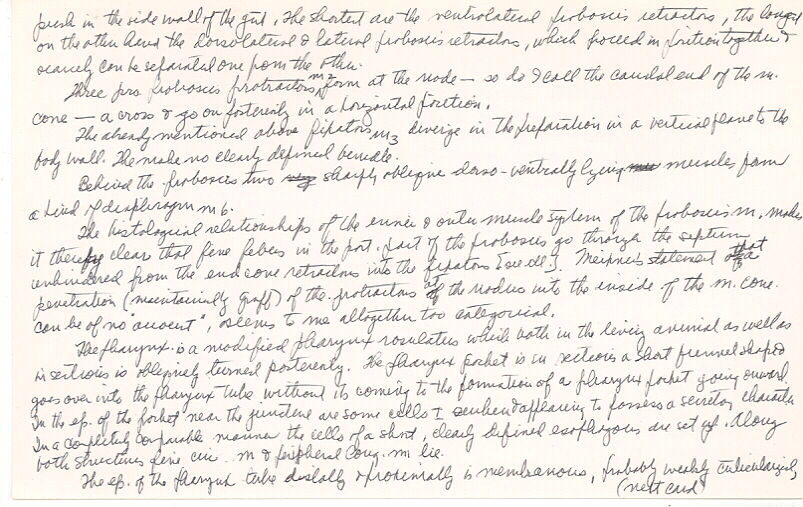 push in the side wall of the gut. The shortest are the ventrolateral proboscis retractors, the longest
on the other hand the dorsolateral & lateral proboscis retractors, which proceed in together &
scarcely can be separated one from the other.
Three prs proboscis protractors m2 form at the node — so do I call the caudal end of the m.
cone — a cross & go on posteriorly in a horizontal
The already mentioned above fixators m3 diverge in the preparation in a vertical plane to the
body wall. The make no clearly defined bundle.
Behind the proboscis two sharply oblique dorso-ventrally lying muscles form
a kind of diaphragm m6.
The histological relationships of the inner & outer muscle system of the proboscis m. makes
it clear that fine fibers in the post. part of the proboscis go through the septum
unhindered from the end cone retractors into the fixators [see dl.]. Meixner's statement that a
penetration (maintaining Graff) of the protractors at the nodus into the inside of the m. cone.
can be of no "account", seems to me altogether too categorical.
The pharynx is a modified pharynx rosulatus which both in the living animal as well as
in sections is obliquely turned posteriorly. The pharynx pocket is in sections a short funnel shaped
goes over into the pharynx tube without its coming to the formation of a pharynx pocket going onward.
In the ep. of the pocket near the juncture are some cells ± appearing to possess a secretory character
In a completely comparable manner the cells of a short, clearly defined esophagous are set up. Along
both structures fine circ. m & peripheral long. m lie.
The ep. of the pharynx tube distally & proximally is membranous, probably weakly cuticularized,
(next card)